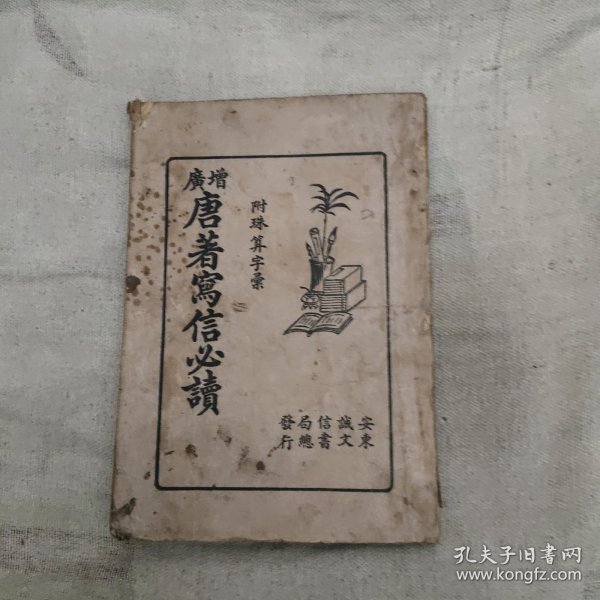 增廣
唐著寫信必讀
附珠算字彙
安東
誠文
信書
局總
發行
孔夫子旧书网
www.kongfz.com